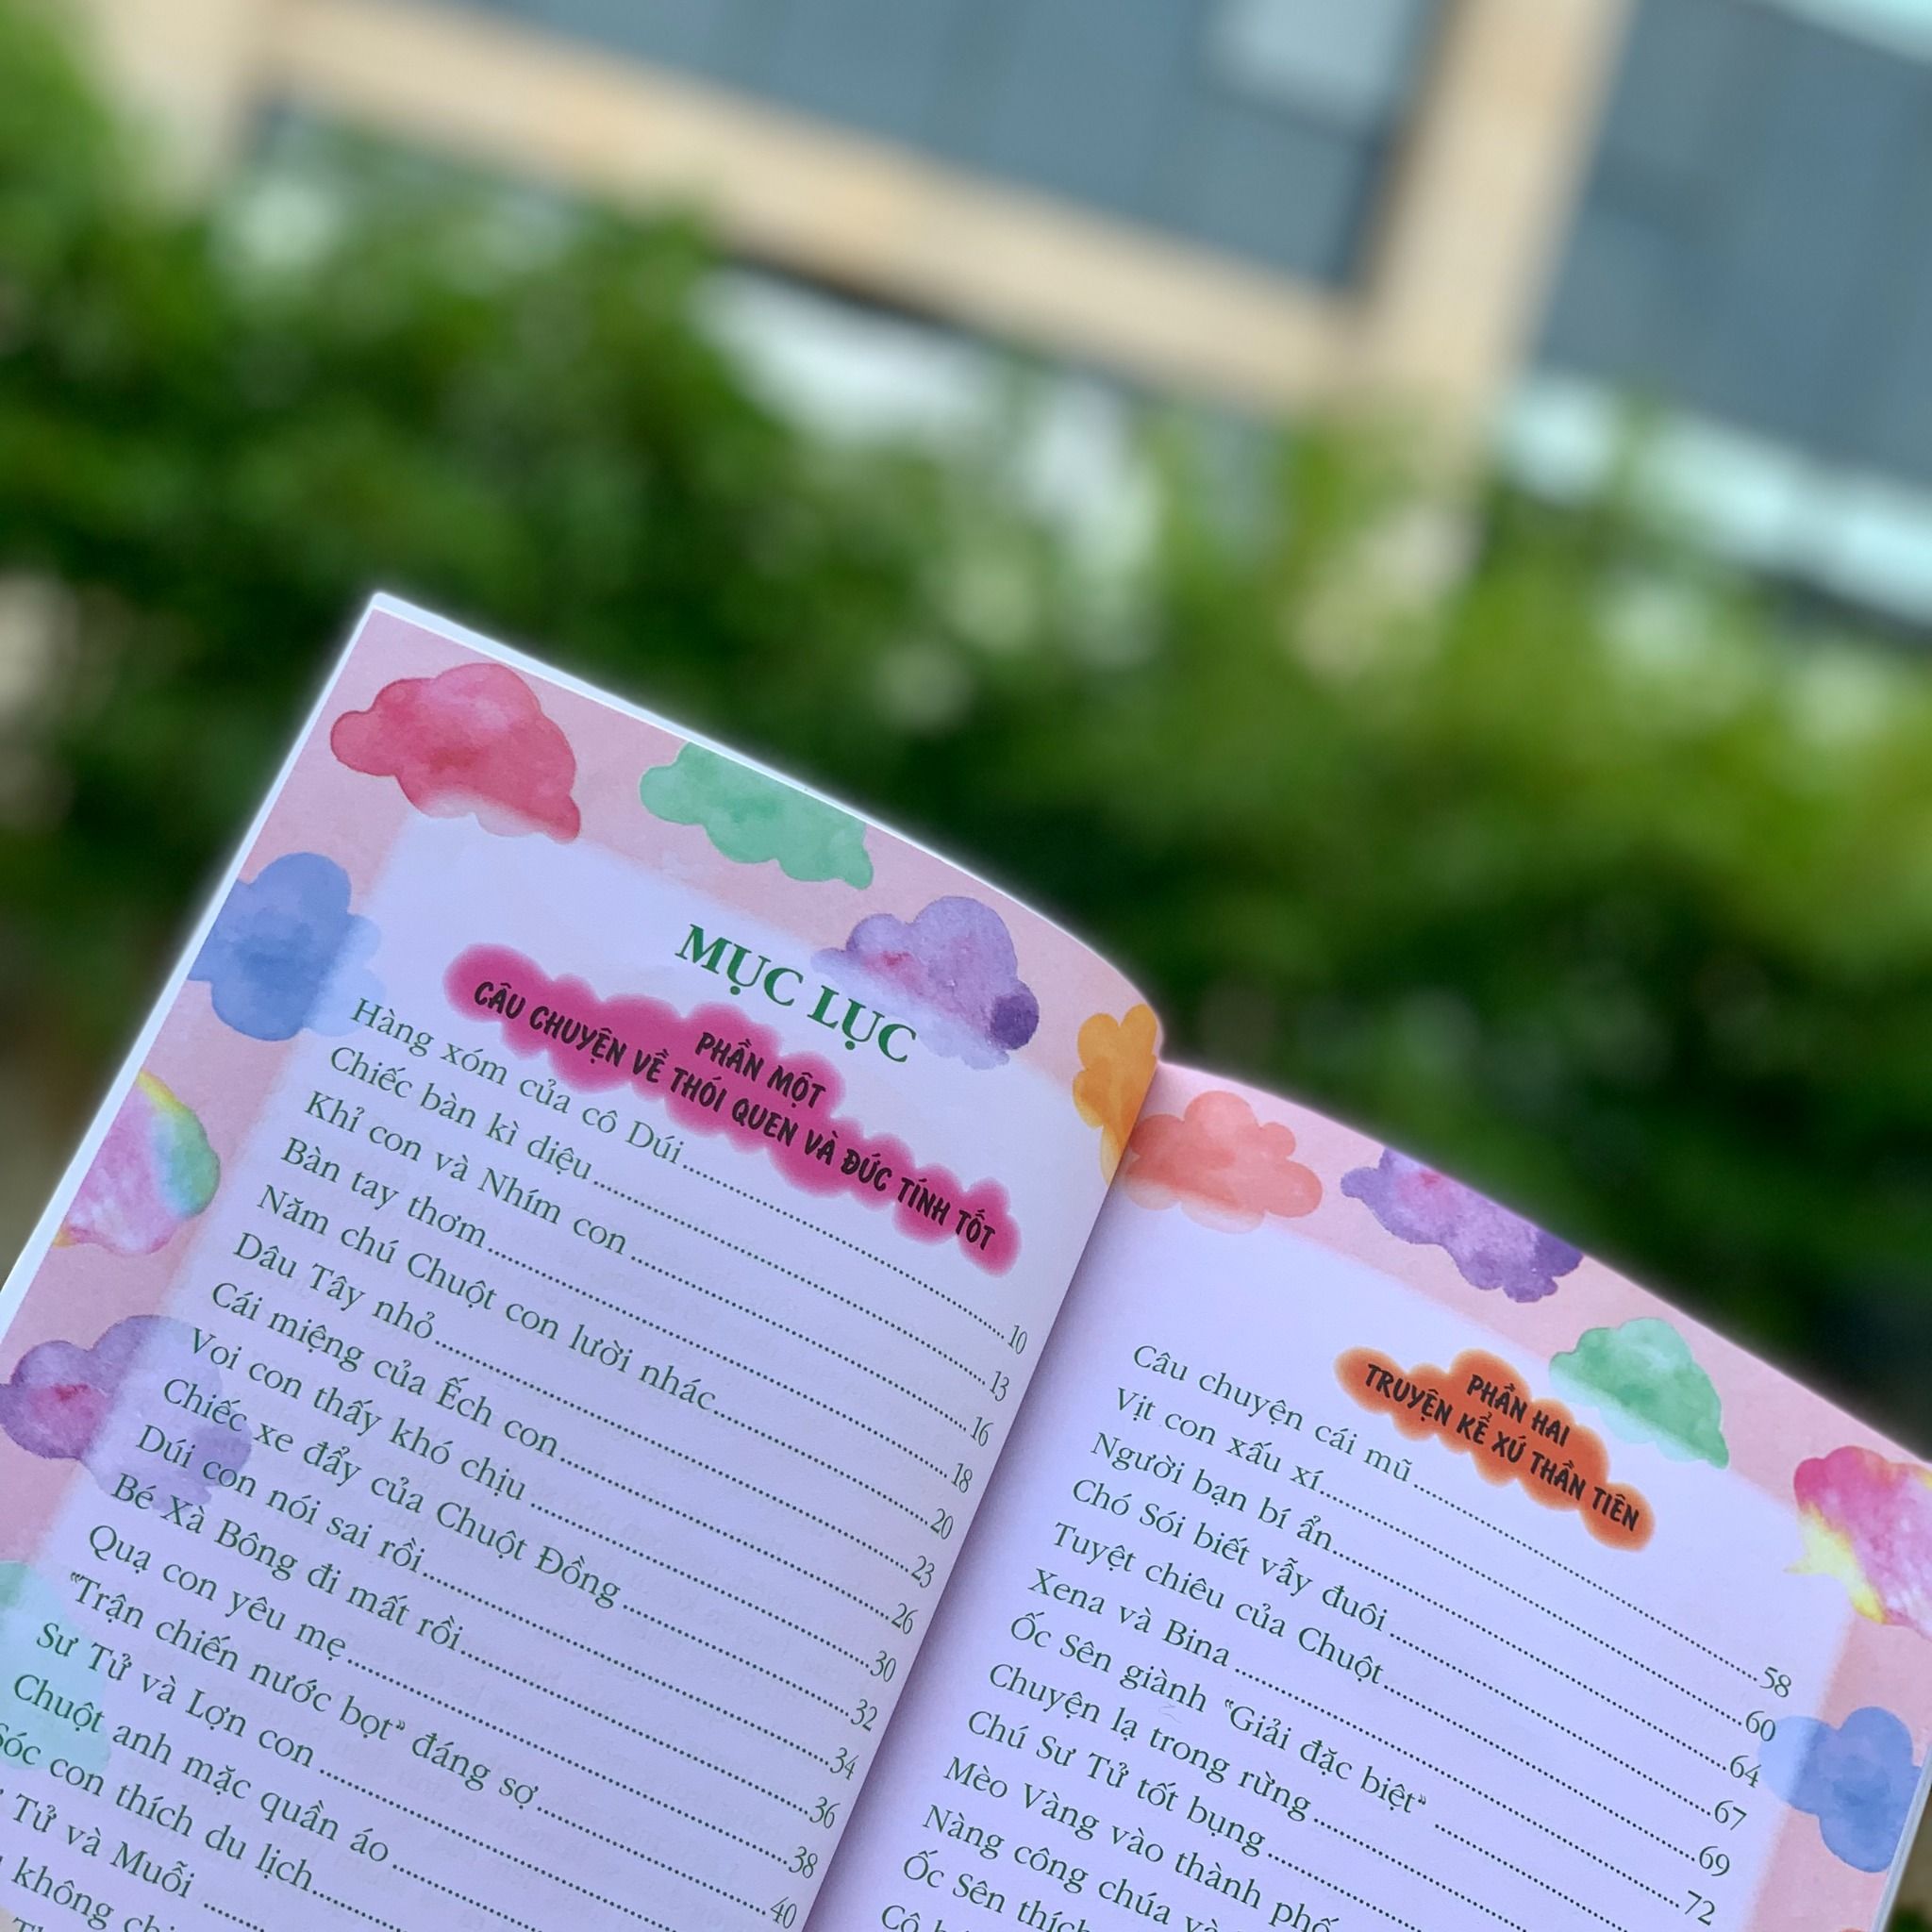 MỤC LỤC
PHẦN MỘT
CÂU CHUYỆN VỀ THÓI QUEN VÀ ĐỨC TÍNH TỐT
Hàng xóm của cô Dúi 10
Chiếc bàn kì diệu 13
Khỉ con và Nhím con 16
Bàn tay thơm 18
Năm chú Chuột con lười nhác 20
Dâu Tây nhỏ 23
Cái miệng của Ếch con 26
Voi con thấy khó chịu 30
Chiếc xe đẩy của Chuột Đồng 32
Dúi con nói sai rồi 34
Bé Xà Bông đi mất rồi 36
Quạ con yêu mẹ 38
"Trận chiến nước bọt" đáng sợ 40
Sư Tử và Lợn con
Chuột anh mặc quần áo
Sóc con thích du lịch
Tử và Muỗi
không
PHẦN HAI
TRUYỆN KỂ XỨ THẦN TIÊN
Câu chuyện cái mũ 58
Vịt con xấu xí 60
Người bạn bí ẩn 64
Chó Sói biết vẫy đuôi 67
Tuyệt chiêu của Chuột 69
Xena và Bina 72
Ốc Sên giành "Giải đặc biệt"
Chuyện lạ trong rừng
Chú Sư Tử tốt bụng
Mèo Vàng vào thành phố
Nàng công chúa và
Ốc Sên thích
Cô